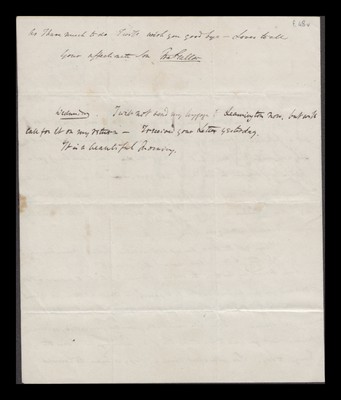 as I have much to do I will wish you good bye — Love to all
Your affectionate Son
Wednesday. I will not send my luggage to Leamington now, but will
call for it on my return — I received your letter yesterday.
It is a beautiful Morning.